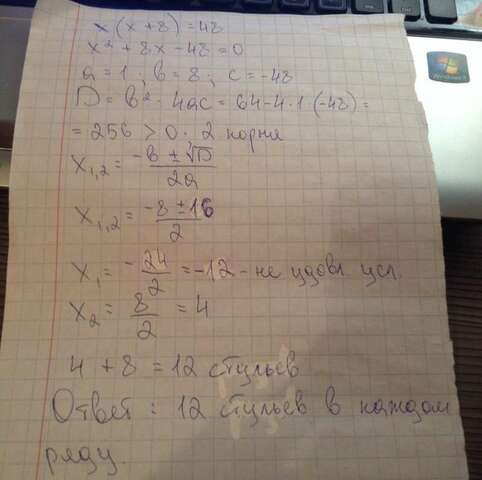 x(x+8)=48
x²+8x-48=0
a=1; в=8; c=-48
D=в²-4ac=64-4·1(-48)=
=256>0. 2 корня
x₁,₂=(-в±√D)/2a
x₁,₂=(-8±16)/2
x₁=-24/2=-12-не удовл усл.
x₂=8/2=4
4+8=12 стульев
Ответ: 12 стульев в каждом
ряду.
Windows 7